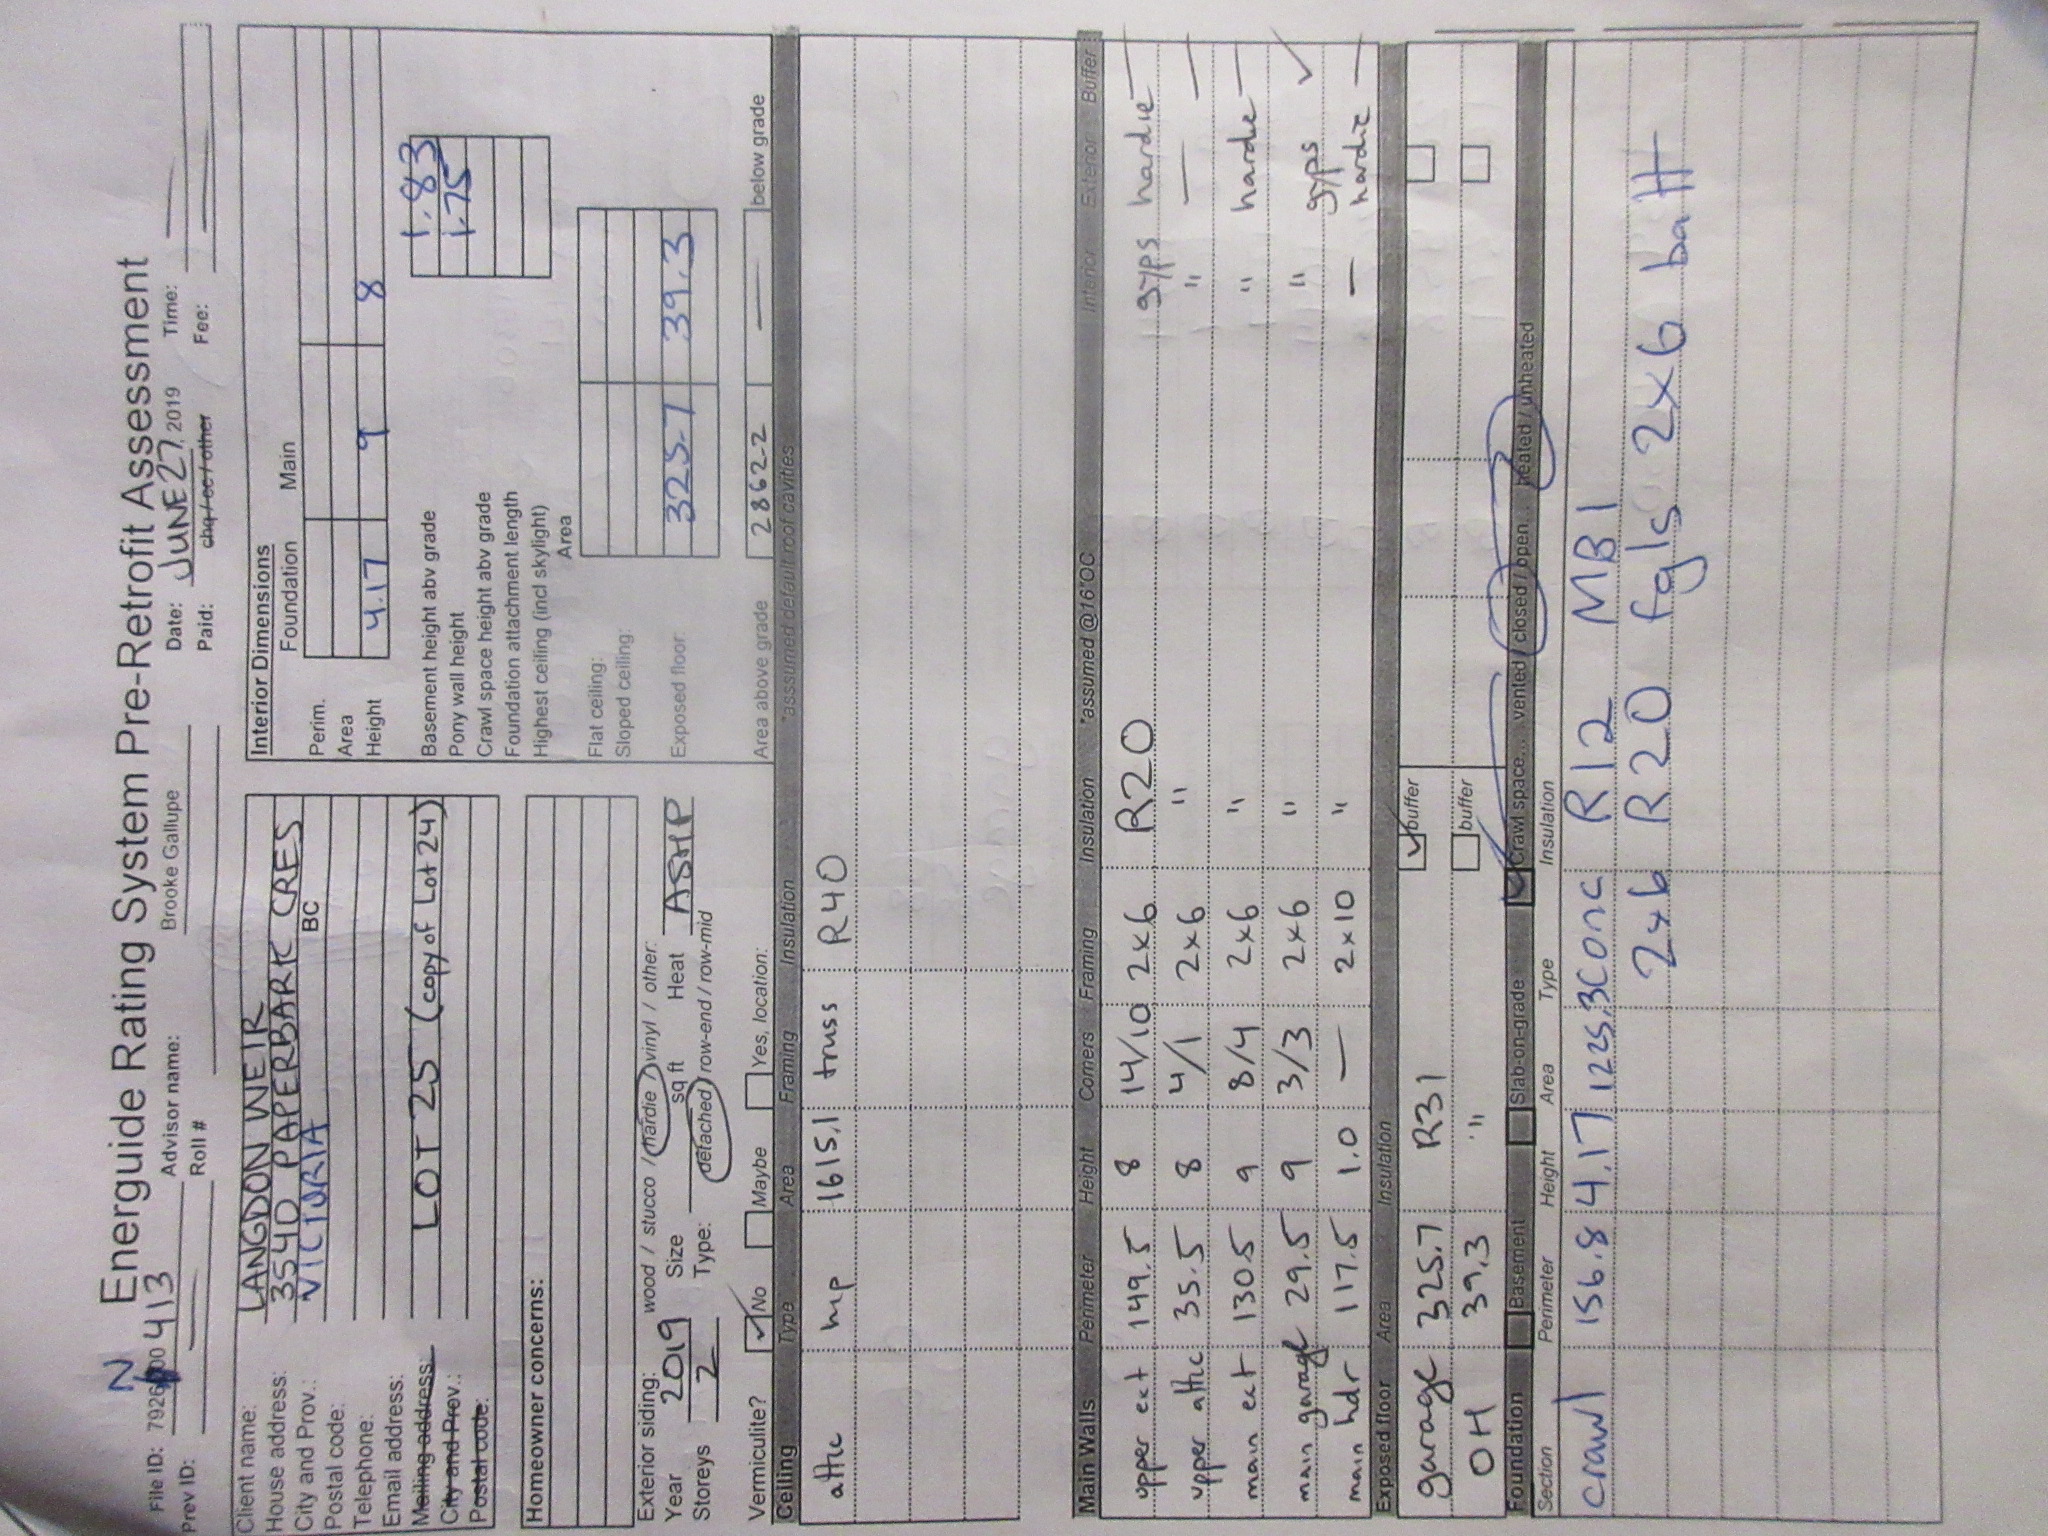 Energuide Rating System Pre-Retrofit Assessment
File ID: 7926 N00 413 Advisor name: Brooke Gallupe Date: JUNE 27, 2019 Time:
Prev ID: Roll # Paid: chq / cc / other Fee:
Client name: LANGDON WEIR
House address: 3540 PAPERBARK CRES
City and Prov.: VICTORIA BC
Postal code:
Telephone:
Email address:
Mailing address: LOT 25 (copy of Lot 24)
City and Prov.:
Postal code:
Homeowner concerns:
Interior Dimensions
Foundation Main
Perim.
Area
Height 4.17 9 8
Basement height abv grade 1.83
Pony wall height 1.75
Crawl space height abv grade
Foundation attachment length
Highest ceiling (incl skylight)
Area
Flat ceiling:
Sloped ceiling:
Exposed floor: 325.7 39.3
Area above grade 2862.2 — below grade
Exterior siding: wood / stucco / hardie / vinyl / other:
Year 2019 Size sq ft Heat ASHP
Storeys 2 Type: detached / row-end / row-mid
Vermiculite? No Maybe Yes, location:
Ceiling Type Area Framing Insulation *asssumed default roof cavities
attic hip 1615.1 truss R40
Main Walls Perimeter Height Corners Framing Insulation *assumed @16"OC Interior Exterior Buffer
upper ext 149.5 8 14/10 2x6 R20 gyps hardie —
upper attic 35.5 8 4/1 2x6 " " — —
main ext 130.5 9 8/4 2x6 " " hardie —
main garage 29.5 9 3/3 2x6 " " gyps ✓
main hdr 117.5 1.0 — 2x10 " — hardie —
Exposed floor Area Insulation
garage 325.7 R31 buffer
OH 39.3 " buffer
Foundation Basement Slab-on-grade Crawl space... vented / closed / open... heated / unheated
Section Perimeter Height Area Type Insulation
crawl 156.8 4.17 1225.3 Conc R12 MB1
2x6 R20 fgls 2x6 batt